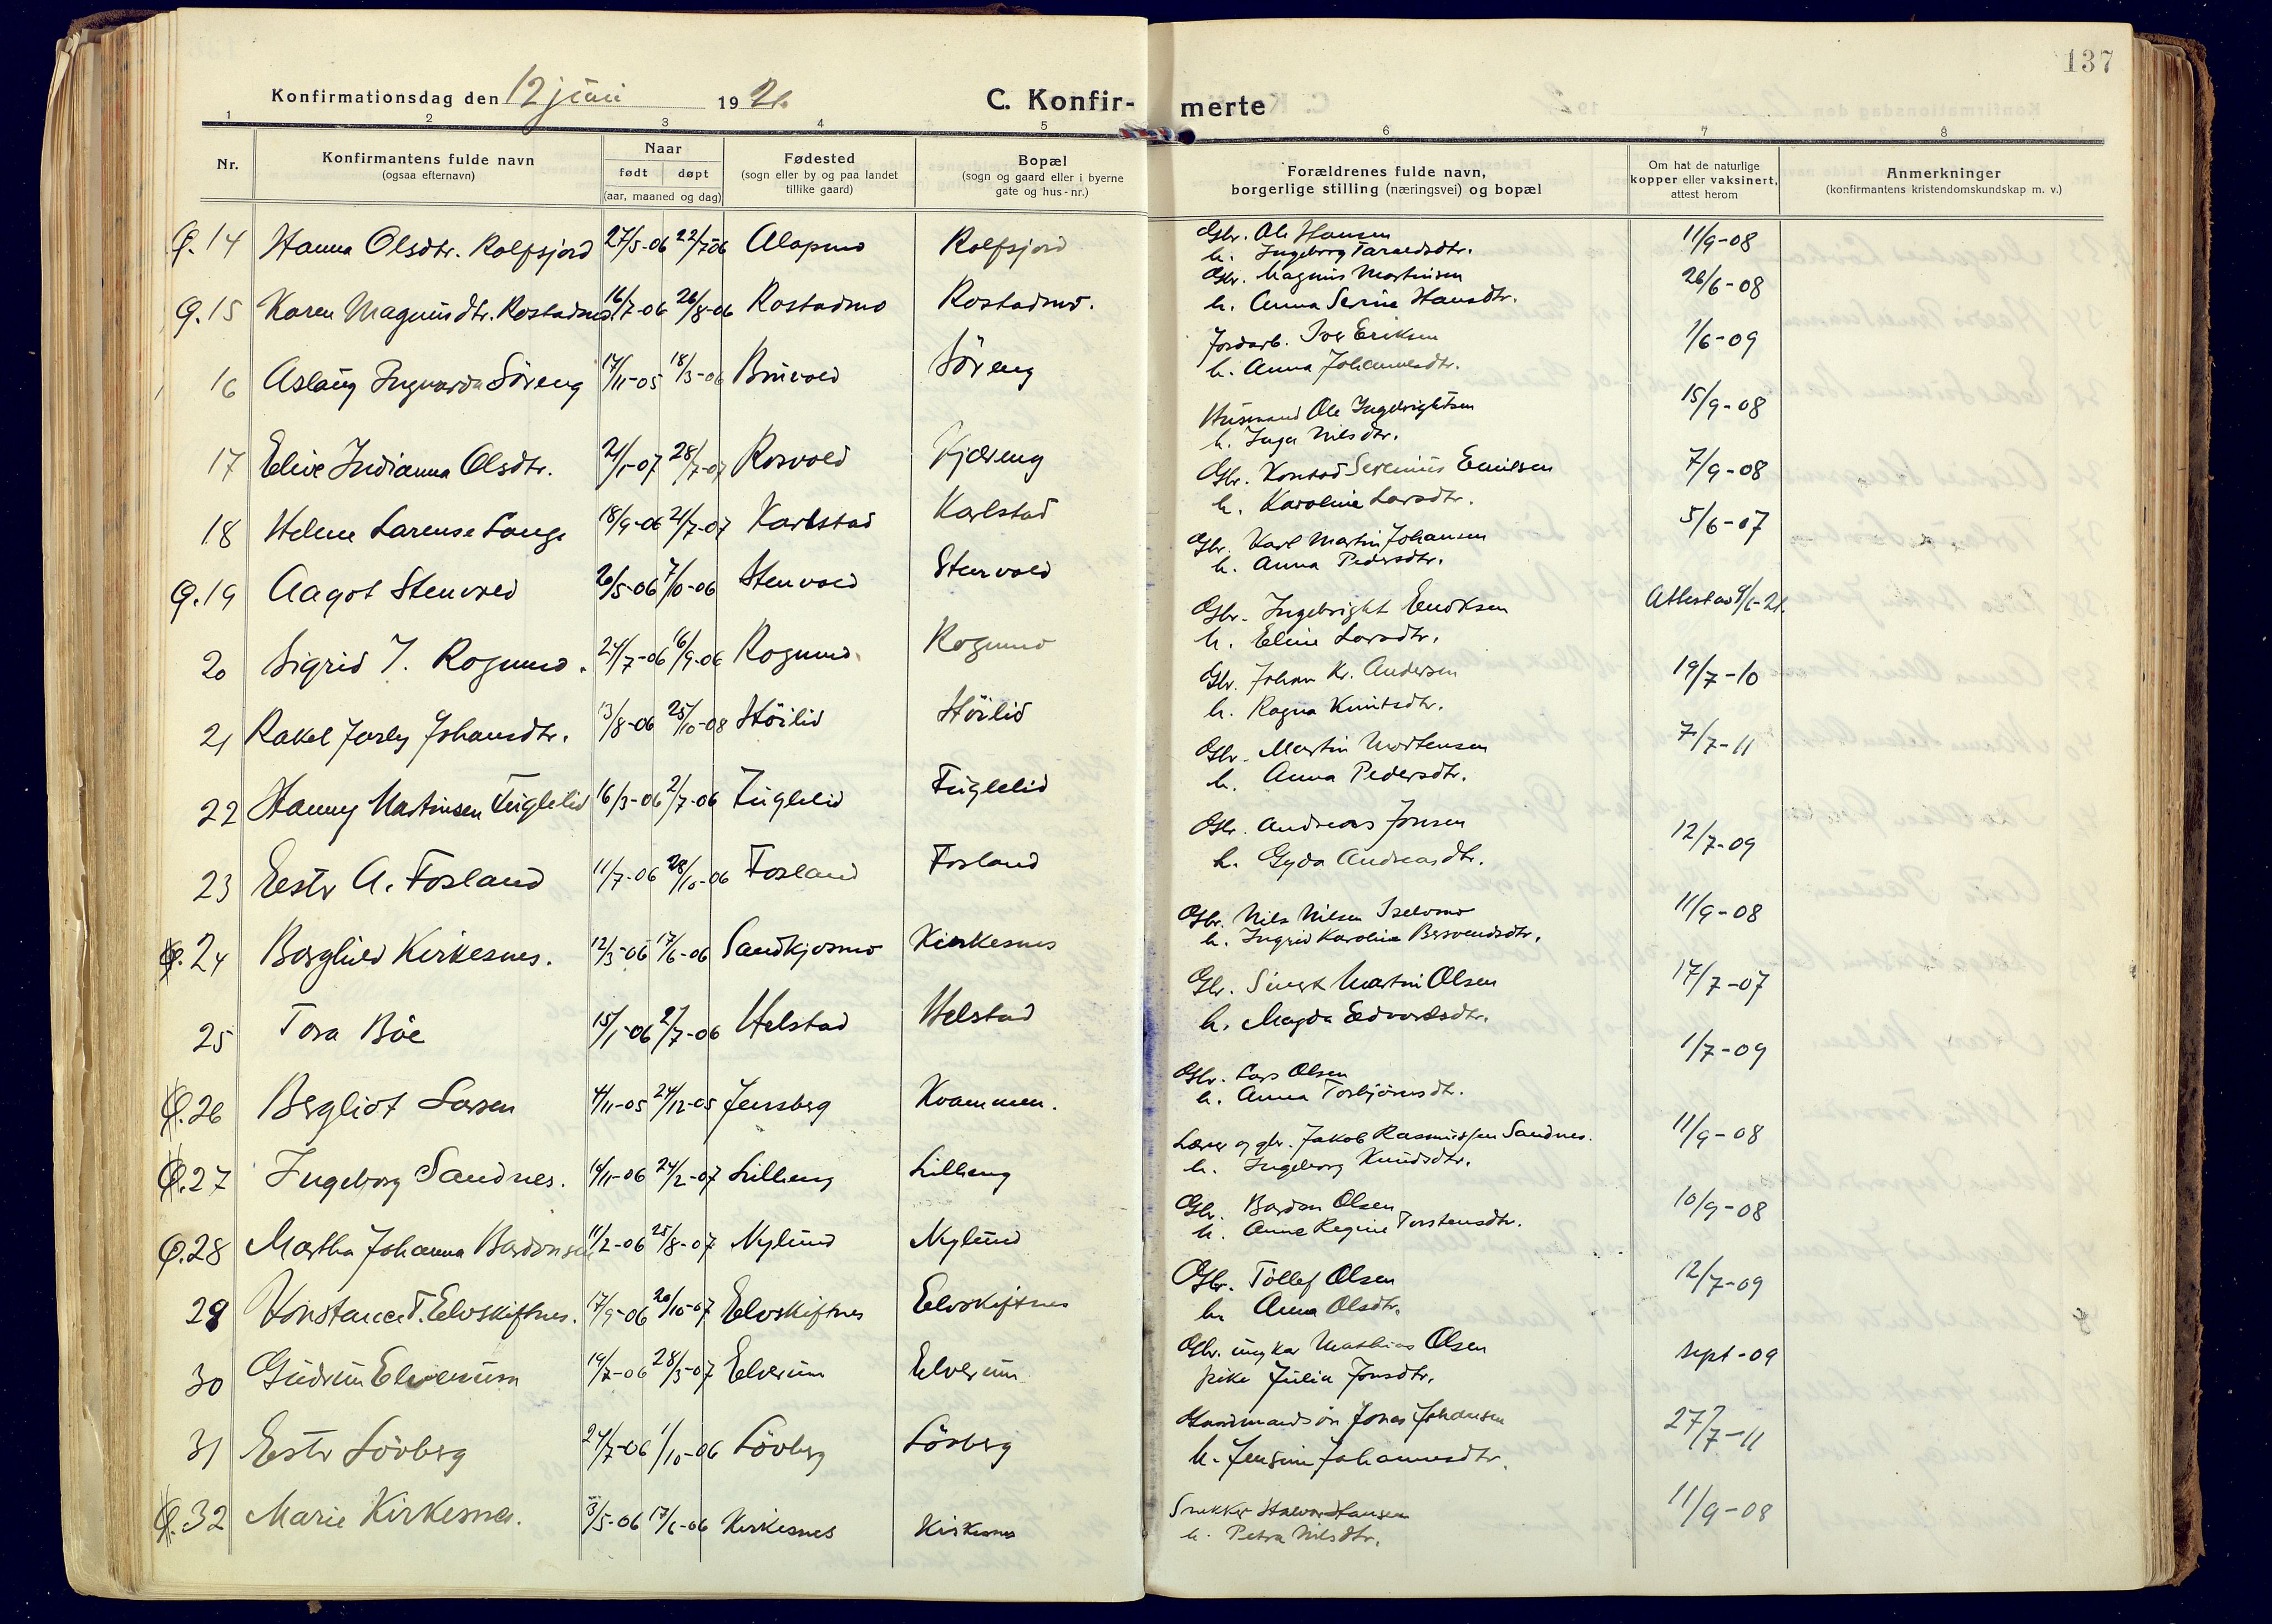 137
Konfirmationsdag den 12 juni 1921
C. Konfir- merte
1 2 3 4 5 6 7 8
Nr.
Konfirmantens fulde navn
(ogsaa efternavn)
Naar
født døpt
(aar, maaned og dag)
Fødested
(sogn eller by og paa landet
tillike gaard)
Bopæl
(sogn og gaard eller i byerne
gate og hus-nr.)
Forældrenes fulde navn,
borgerlige stilling (næringsvei) og bopæl
Om hat de naturlige
kopper eller vaksinert,
attest herom
Anmerkninger
(konfirmantens kristendomskundskap m. v.)
14 Hanna Olsdtr. Rolfsjord 27/5-06 22/7-06 Alapmo Rolfsjord Gbr. Ole Hansen 11/9-08
h. Ingeborg Taraldsdtr.
15 Karen Magnusdtr. Rostadmo 16/7-06 26/8-06 Rostadmo Rostadmo. Gbr. Magnus Martinsen 26/6-08
h. Anna Serine Hansdtr.
16 Aslaug Ingvarda Söreng 17/11-05 18/3-06 Brüvold Söreng Jordarb. Iver Eriksen 1/6-09
h. Anna Johannesdtr.
17 Elive Indianna Olsdtr. 21/1-07 28/7-07 Rosvold Kjæreng Husmand Ole Ingebrigtsen 15/9-08
h. Inga Nilsdtr.
18 Helene Larense Lange 18/9-06 21/7-07 Karlstad Karlstad Gbr. Konrad Severinus Emilsen 7/9-08
h. Karoline Larsdtr.
19 Aagot Stenvold 20/5-06 7/10-06 Stenvold Stenvold Gbr. Karl Martin Johansen 5/6-07
h. Anna Pedersdtr.
20 Sigrid I. Rognmo. 24/7-06 16/9-06 Rognmo. Rognmo Gbr. Ingebright Endksen Attest av 9/6-21.
h. Eline Larsdtr.
21 Rakel Jarly Johansdtr. 13/8-06 25/10-08 Höilid Höilid Gbr. Johan Kr. Andersen 19/7-10
h. Ragna Knutsdtr.
22 Hanny Martinsen Fuglelid 16/3-06 2/7-06 Fuglelid Fuglelid Gbr. Martin Mortensen 7/7-11
h. Anna Pedersdtr.
23 Ester A. Fosland 11/7-06 28/10-06 Fosland Fosland Gbr. Andreas Jonsen 12/7-09
h. Gyda Andreasdtr.
24 Borghild Kirkesnes. 12/3-06 17/6-06 Sandkjosmo Kirkesnes Gbr. Nils Nilsen Iselvmo 11/9-08
h. Ingrid Karoline Bersvendsdtr.
25 Tora Böe 15/1-06 27/7-06 Helstad Helstad Gbr. Sivert Martin Olsen 17/7-07
h. Magda Edvardsdtr.
26 Bergliot Larsen 4/11-05 24/12-05 Jensberg Kvammen. Gbr. Lars Olsen 1/7-09
h. Anna Torbjörnsdtr.
27 Ingeborg Sandnes. 14/11-06 24/2-07 Lilleng Lilleng Lærer og gbr. Jakob Rasmussen Sandnes. 11/9-08
h. Ingeborg Knudsdtr.
28 Martha Johanna Bardonsen 11/2-06 25/8-07 Nylund Nylund Gbr. Bardon Olsen 10/9-08
h. Anne Regine Torstensdtr.
29 Konstance T. Elvskiftnes. 17/9-06 20/10-07 Elvskiftnes Elvskiftnes Gbr. Tollef Olsen 12/7-09
h. Anna Olsdtr.
30 Gudrun Elverum 19/7-06 28/3-07 Elverum Elverum Gbr. ungkar Mathias Olsen sept-09
pike Julia Jonsdtr.
31 Ester Lövberg 24/7-06 1/10-06 Lövberg Lövberg Gaardmandssön Jonas Johansen 27?/7-11
h. Jensine Johannesdtr.
32 Marie Kirkesnes. 3/5-06 17/6-06 Kirkesnes Kirkesnes Snekker Halvor Hansen 11/9-08
h. Petra Nilsdtr.